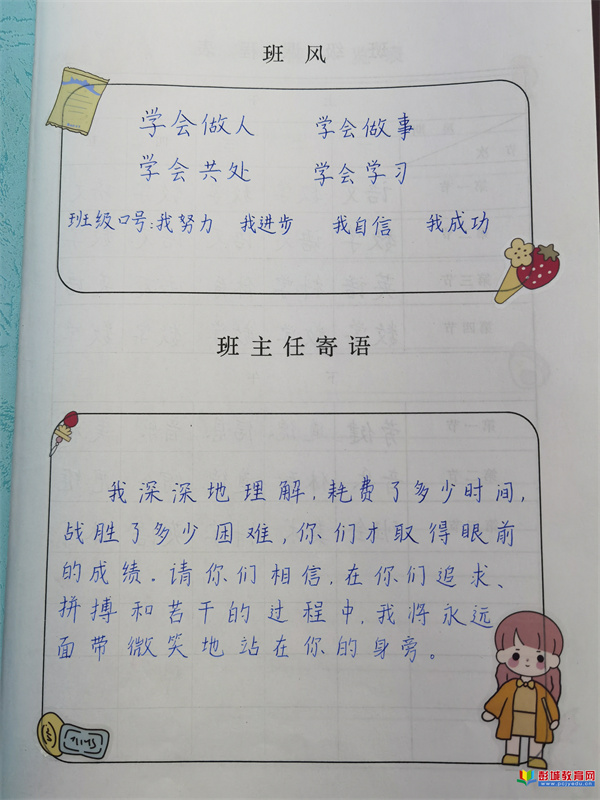 班 风
学会做人 学会做事
学会共处 学会学习
班级口号:我努力 我进步 我自信 我成功
班主任寄语
我深深地理解,耗费了多少时间,
战胜了多少困难,你们才取得眼前
的成绩.请你们相信,在你们追求、
拼搏和苦干的过程中,我将永远
面带微笑地站在你的身旁。
彭城教育网
www.pcjyedu.cn